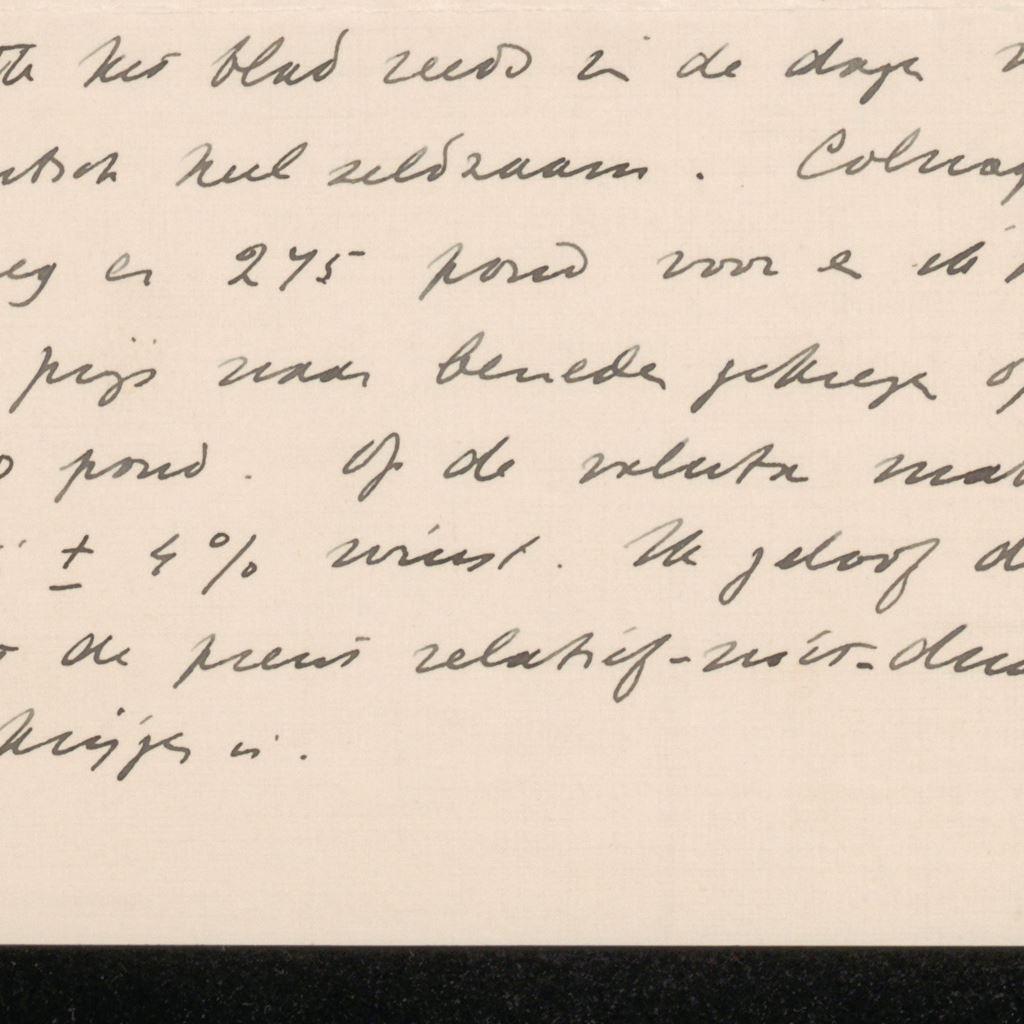 het blad reeds in de dagen
heel seldzaam. Colnag
eg er 275 pond voor en ik
prijs naar beneden gekregen op
0 pond. Op de valuta maa
± 4% winst. Ik geloof d
de prent relatief-niet-duu
krijgen is.